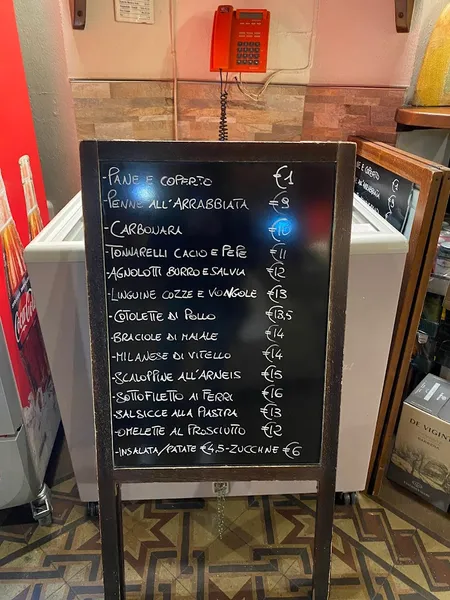 -PANE E COPERTO €1
-PENNE ALL'ARRABBIATA €9
-CARBONARA €10
-TONNARELLI CACIO E PEPE €11
-AGNOLOTTI BURRO E SALVIA €12
-LINGUINE COZZE E VONGOLE €13
-COTOLETTE DI POLLO €13,5
-BRACIOLE DI MAIALE €14
-MILANESE DI VITELLO €14
-SCALOPPINE ALL'ARNEIS €15
-SOTTOFILETTO AI FERRI €16
-SALSICCE ALLA PIASTRA €13
-OMELETTE AL PROSCIUTTO €12
-INSALATA/PATATE €4,5-ZUCCHINE €6
Coca-Cola
DE VIGINI